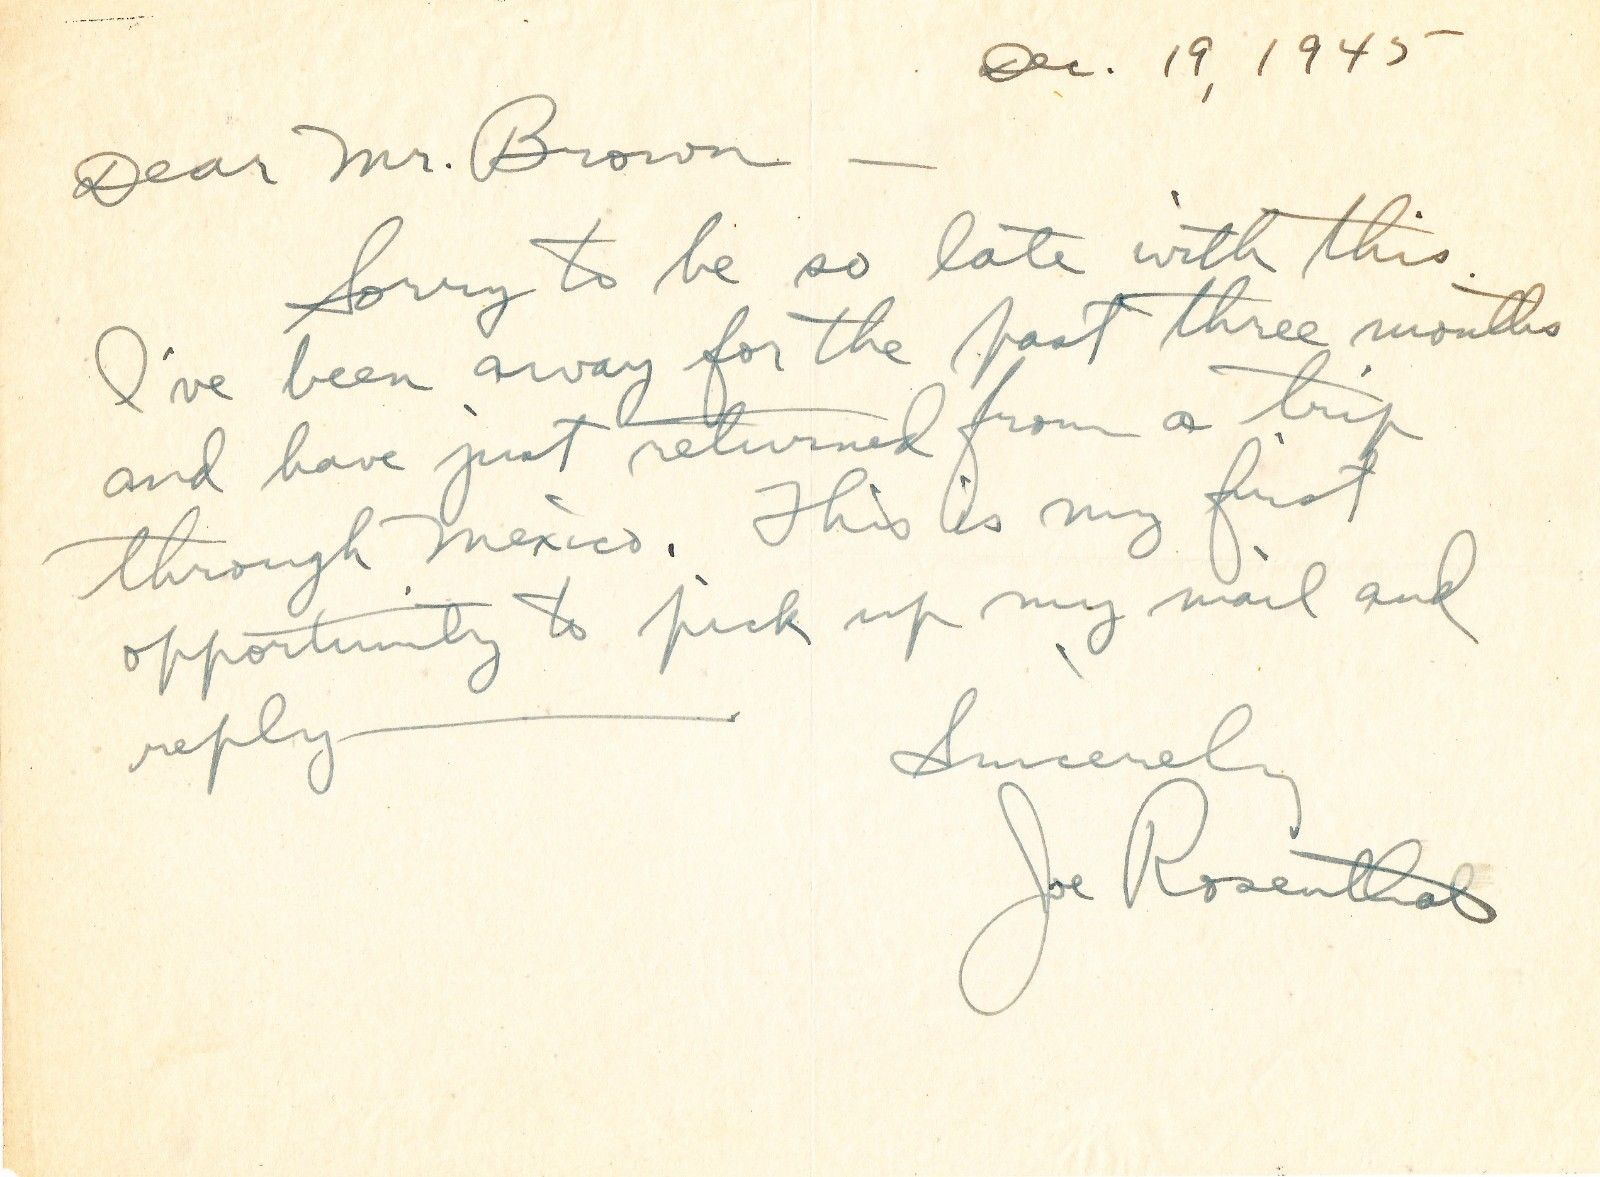 Dec. 19, 1945
Dear Mr. Brown —
Sorry to be so late with this.
I've been away for the past three months
and have just returned from a trip
through Mexico. This is my first
opportunity to pick up my mail and
reply —
Sincerely
Joe Rosenthal